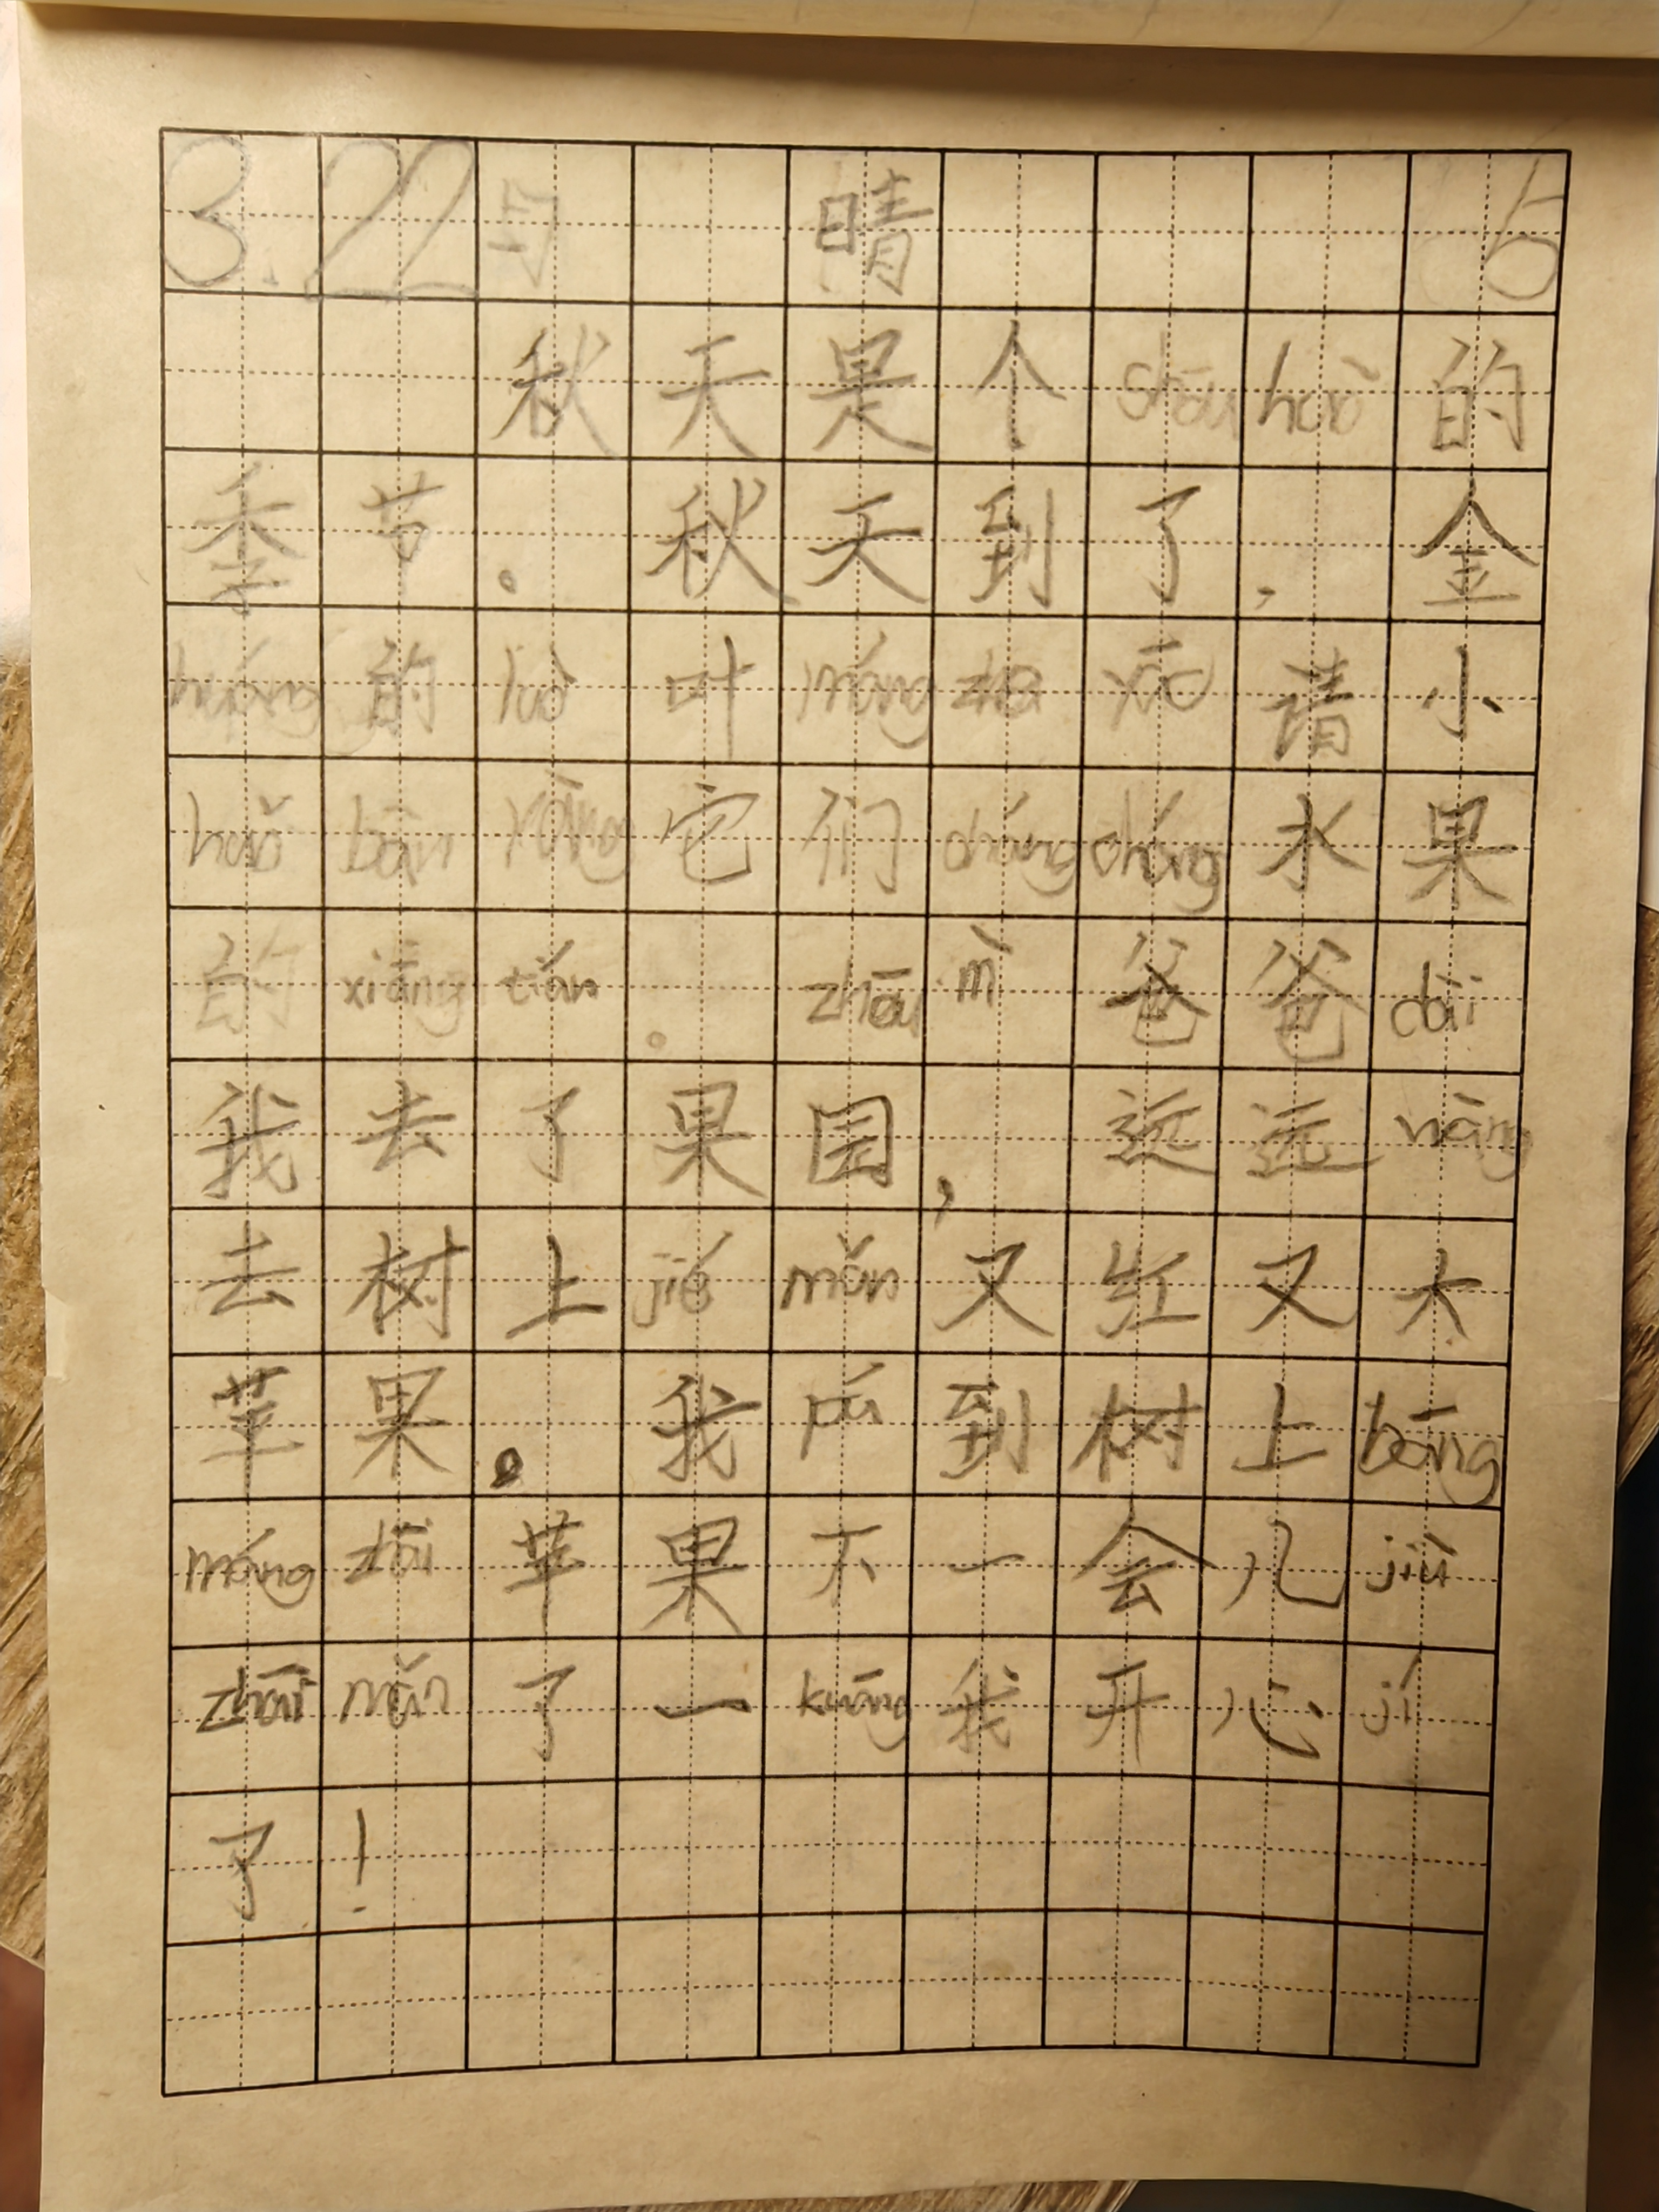 3.22 晴 6
秋天是个shōu huò的
季节。秋天到了,金
huáng的luò叶máng zhe yāo请小
huǒ bàn ràng它们cháng cháng水果
的xiāng tián。zhōu mì爸爸dài
我去了果园,远远wàng
去树上jié mǎn又红又大
苹果。我后到树上bāng
máng zāi苹果不一会儿jiù
zhāi mǎn了一kuāng我开心jí
了!